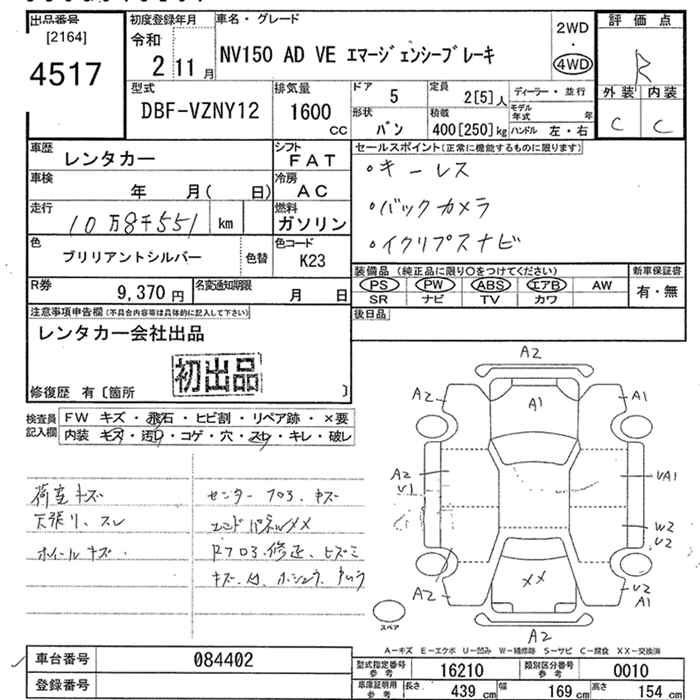 出品番号
[2164]
4517
初度登録年月
令和
2年11月
車名・グレード
NV150 AD VE エマージェンシーブレーキ
2WD
・
4WD
評価点
R
外装 内装
C C
型式
DBF-VZNY12
排気量
1600
CC
ドア
5
定員
2[5]人
形状
バン
積載
400[250]kg
ディーラー・並行
モデル年式 年
ハンドル 左・右
車歴
レンタカー
シフト
FAT
車検
年 月( 日)
冷房
AC
走行
10万8千551 km
燃料
ガソリン
色
ブリリアントシルバー
色替
色コード
K23
R券
9,370円
名変通知期限
月 日
セールスポイント(正常に機能するものに限ります)
・キーレス
・バックカメラ
・イクリプスナビ
装備品(純正品に限り○をつけてください)
PS PW ABS エアB AW
SR ナビ TV カワ
新車保証書
有・無
後日品
注意事項申告欄(不具合内容等は具体的に記入して下さい)
レンタカー会社出品
初出品
修復歴 有〔箇所 〕
検査員記入欄
FW キズ・飛石・ヒビ割・リペア跡・×要
内装 キズ・汚れ・コゲ・穴・スレ・キレ・破レ
荷室キズ
天張り、スレ
ホイールキズ
センターフロア、キズ
エンドパネルメメ
Rフロア.修正、ヒズミ
A2
A2
A1
A1
A2
V1
VA1
W2
V2
A2
××
V2
A1
A2
スペア
A-キズ E-エクボ U-凹み W-補修跡 S-サビ C-腐食 XX-交換済
車台番号
084402
登録番号
型式指定番号
参考
16210
類別区分番号
参考
0010
車庫証明用
参考
長さ
439 cm
幅
169 cm
高さ
154 cm